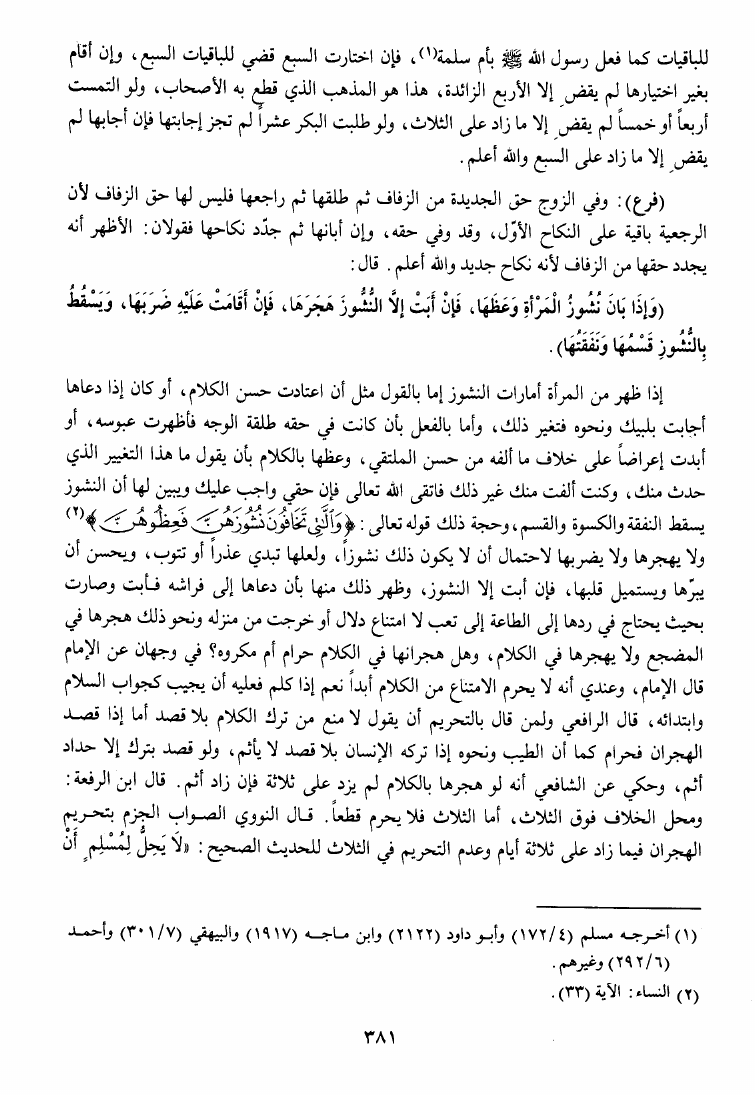 للباقيات كما فعل رسول الله ﷺ بأم سلمة(١)، فإن اختارت السبع قضي للباقيات السبع، وإن أقام
بغير اختيارها لم يقضِ إلا الأربع الزائدة، هذا هو المذهب الذي قطع به الأصحاب، ولو التمست
أربعاً أو خمساً لم يقضِ إلا ما زاد على الثلاث، ولو طلبت البكر عشراً لم تجز إجابتها فإن أجابها لم
يقضِ إلا ما زاد على السبع والله أعلم.
(فرع): وفي الزوج حق الجديدة من الزفاف ثم طلقها ثم راجعها فليس لها حق الزفاف لأن
الرجعية باقية على النكاح الأوّل، وقد وفي حقه، وإن أبانها ثم جدّد نكاحها فقولان: الأظهر أنه
يجدد حقها من الزفاف لأنه نكاح جديد والله أعلم. قال:
(وَإِذَا بَانَ نُشُوزُ الْمَرْأَةِ وَعَظَهَا، فَإِنْ أَبَتْ إِلَّا النُّشُوزَ هَجَرَهَا، فَإِنْ أَقَامَتْ عَلَيْهِ ضَرَبَهَا، وَيَسْقُطُ
بِالنُّشُوزِ قَسْمُهَا وَنَفَقَتُهَا).
إذا ظهر من المرأة أمارات النشوز إما بالقول مثل أن اعتادت حسن الكلام، أو كان إذا دعاها
أجابت بلبيك ونحوه فتغير ذلك، وأما بالفعل بأن كانت في حقه طلقة الوجه فأظهرت عبوسه، أو
أبدت إعراضاً على خلاف ما ألفه من حسن الملتقي، وعظها بالكلام بأن يقول ما هذا التغيير الذي
حدث منك، وكنت ألفت منك غير ذلك فاتقى الله تعالى فإن حقي واجب عليك ويبين لها أن النشوز
يسقط النفقة والكسوة والقسم، وحجة ذلك قوله تعالى: ﴿وَٱلَّٰتِي تَخَافُونَ نُشُوزَهُنَّ فَعِظُوهُنَّ﴾(٢)
ولا يهجرها ولا يضربها لاحتمال أن لا يكون ذلك نشوزاً، ولعلها تبدي عذراً أو تتوب، ويحسن أن
يبرّها ويستميل قلبها، فإن أبت إلا النشوز، وظهر ذلك منها بأن دعاها إلى فراشه فـأبت وصارت
بحيث يحتاج في ردها إلى الطاعة إلى تعب لا امتناع دلال أو خرجت من منزله ونحو ذلك هجرها في
المضجع ولا يهجرها في الكلام، وهل هجرانها في الكلام حرام أم مكروه؟ في وجهان عن الإمام
قال الإمام، وعندي أنه لا يحرم الامتناع من الكلام أبداً نعم إذا كلم فعليه أن يجيب كجواب السلام
وابتدائه، قال الرافعي ولمن قال بالتحريم أن يقول لا منع من ترك الكلام بلا قصد أما إذا قصـد
الهجران فحرام كما أن الطيب ونحوه إذا تركه الإنسان بلا قصد لا يأثم، ولو قصد بترك إلا حداد
أثم، وحكي عن الشافعي أنه لو هجرها بالكلام لم يزد على ثلاثة فإن زاد أثم. قال ابن الرفعة:
ومحل الخلاف فوق الثلاث، أما الثلاث فلا يحرم قطعاً. قـال النووي الصـواب الجزم بتحـريم
الهجران فيما زاد على ثلاثة أيام وعدم التحريم في الثلاث للحديث الصحيح: «لَا يَحِلُّ لِمُسْلِمٍ أَنْ
(١) أخـرجـه مسلم (١٧٢/٤) وأبـو داود (٢١٢٢) وابن مـاجـه (١٩١٧) والبيهقي (٣٠١/٧) وأحمـد
(٢٩٢/٦) وغيرهم.
(٢) النساء: الآية (٣٣).
٣٨١